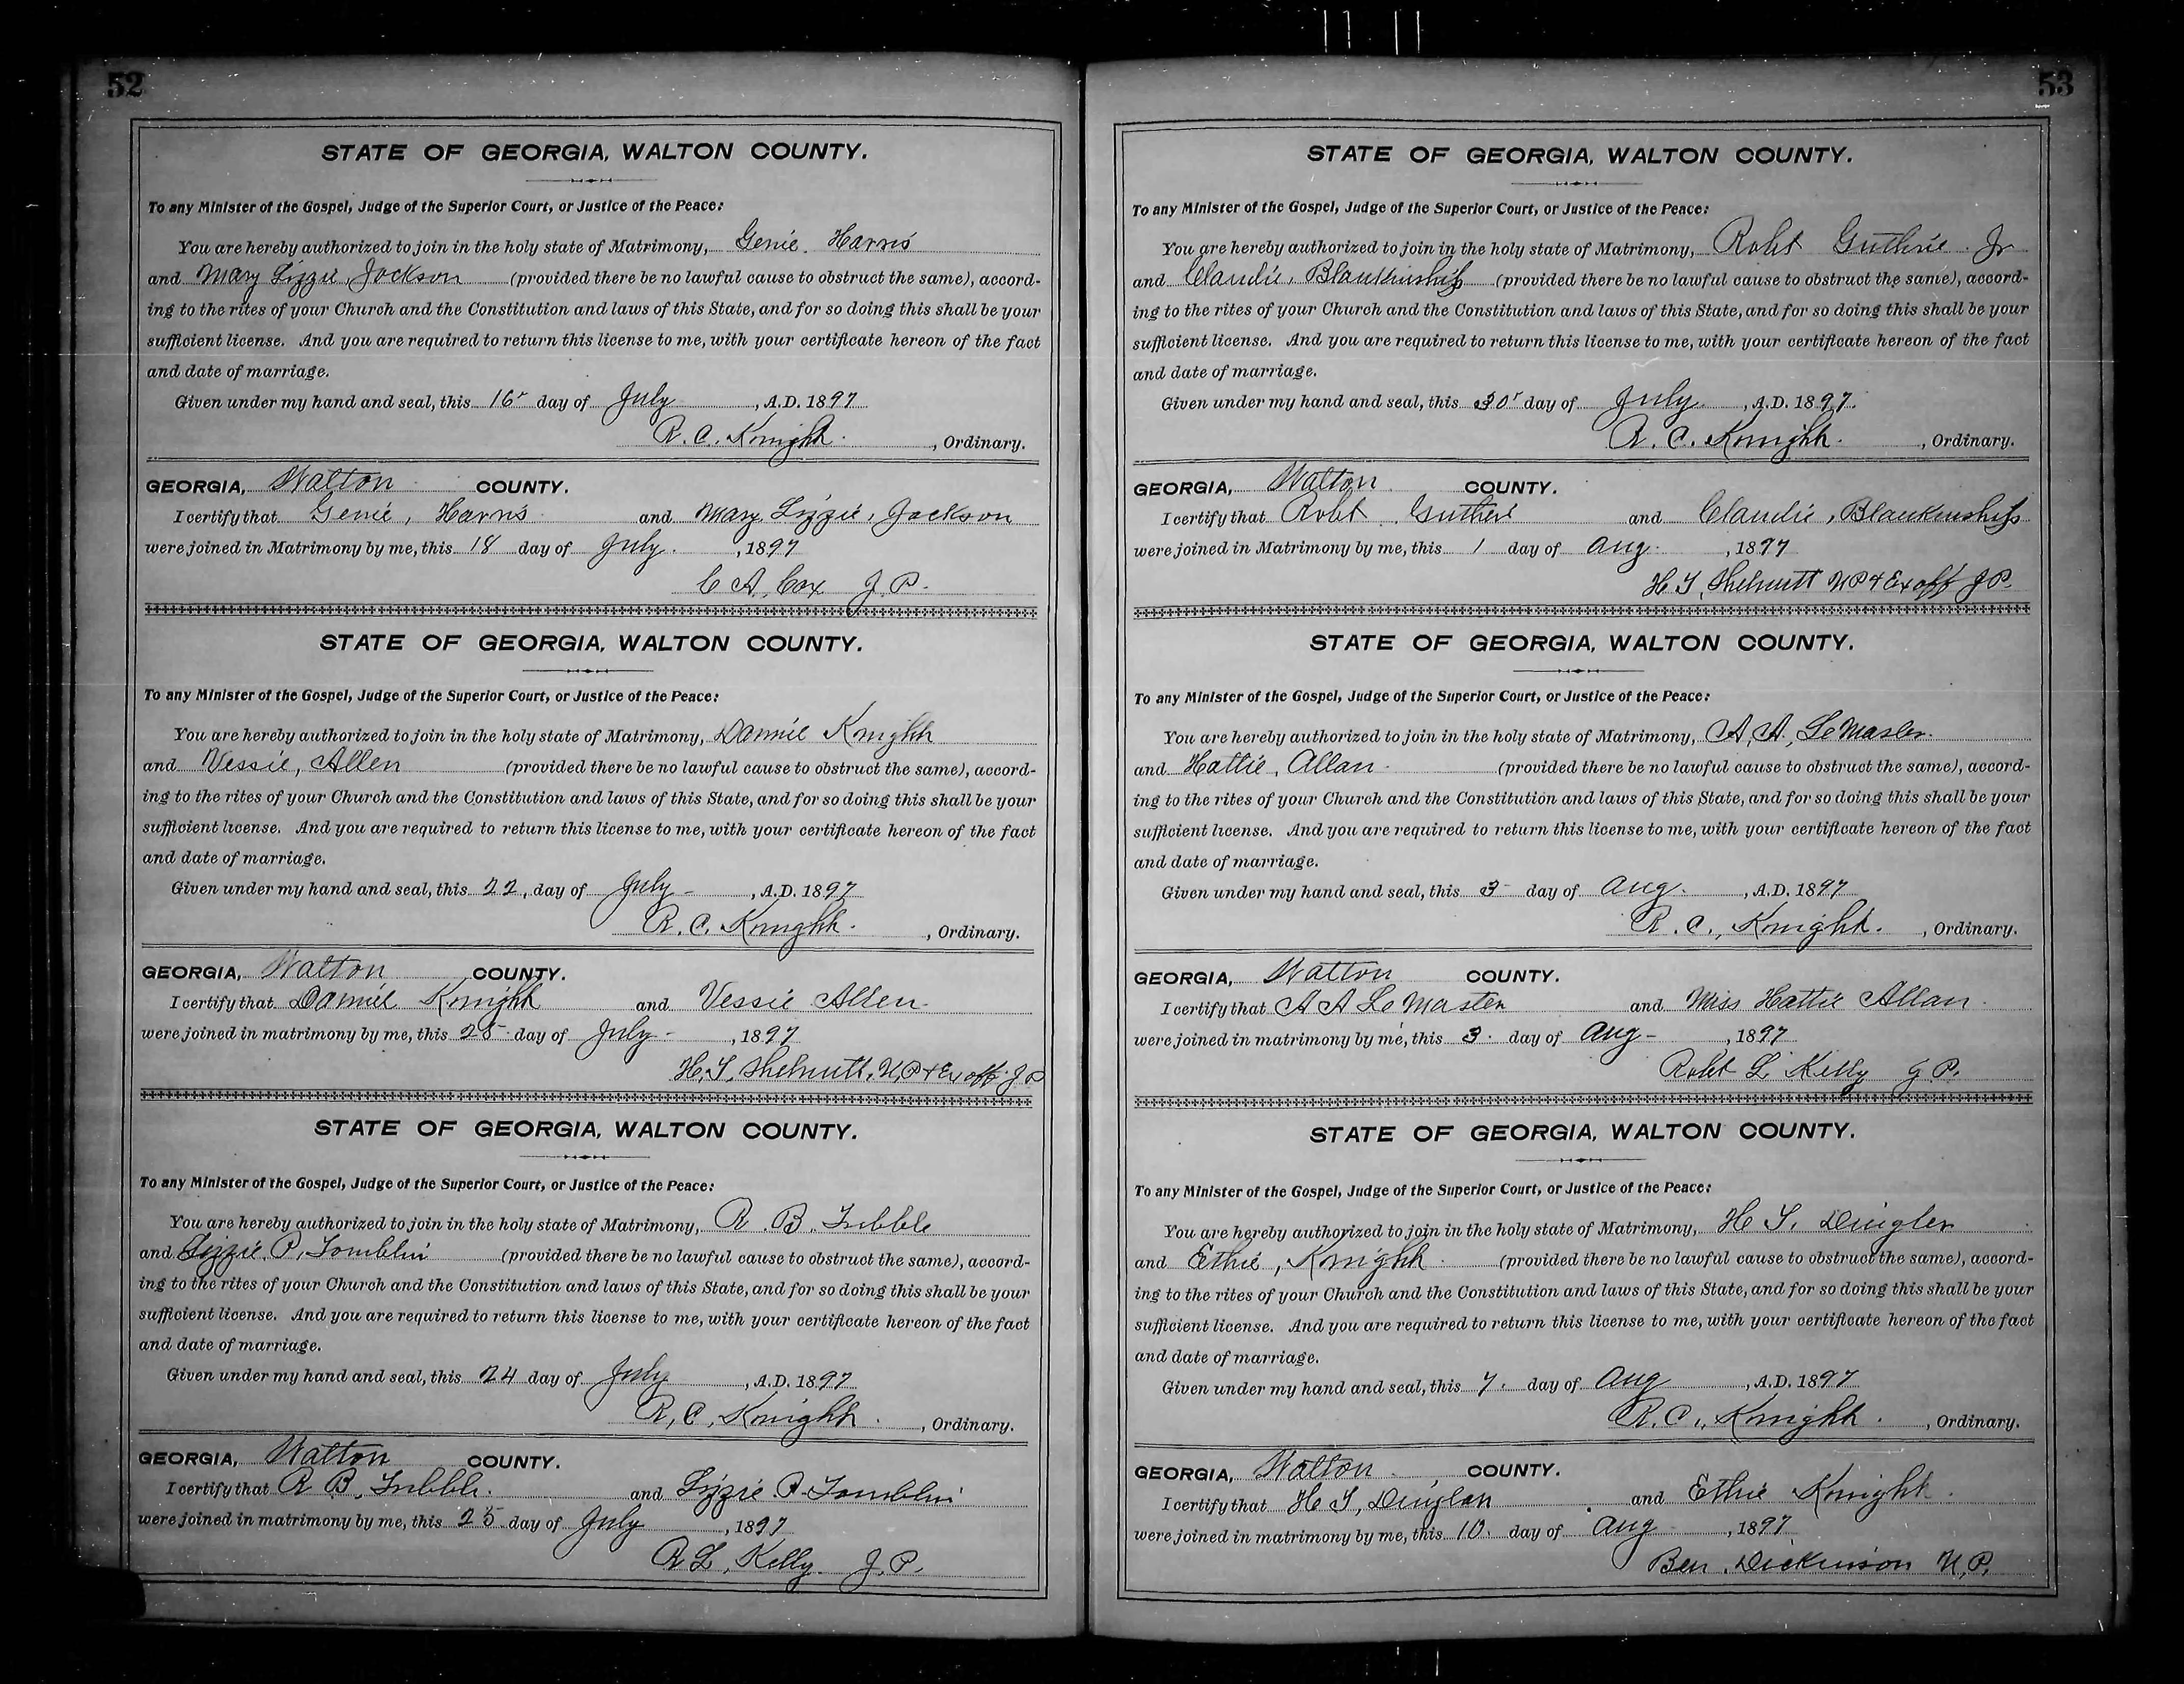 52
STATE OF GEORGIA, WALTON COUNTY.
To any Minister of the Gospel, Judge of the Superior Court, or Justice of the Peace:
You are hereby authorized to join in the holy state of Matrimony, Genie. Harris
and Mary Lizzie, Jackson (provided there be no lawful cause to obstruct the same), accord-
ing to the rites of your Church and the Constitution and laws of this State, and for so doing this shall be your
sufficient license. And you are required to return this license to me, with your certificate hereon of the fact
and date of marriage.
Given under my hand and seal, this 16" day of July, A.D. 1897
R. C. Knight. , Ordinary.
GEORGIA, Walton COUNTY.
I certify that Genie, Harris and Mary Lizzie, Jackson
were joined in Matrimony by me, this 18 day of July. , 1897
C A. Cox J. P.
STATE OF GEORGIA, WALTON COUNTY.
To any Minister of the Gospel, Judge of the Superior Court, or Justice of the Peace:
You are hereby authorized to join in the holy state of Matrimony, Dannie Knight
and Vessie, Allen (provided there be no lawful cause to obstruct the same), accord-
ing to the rites of your Church and the Constitution and laws of this State, and for so doing this shall be your
sufficient license. And you are required to return this license to me, with your certificate hereon of the fact
and date of marriage.
Given under my hand and seal, this 22, day of July - , A.D. 1897
R. C. Knight. , Ordinary.
GEORGIA, Walton COUNTY.
I certify that Dannie Knight and Vessie Allen.
were joined in matrimony by me, this 25 day of July - , 1897
H. T. Shelnutt, N.P & Ex off. J P
STATE OF GEORGIA, WALTON COUNTY.
To any Minister of the Gospel, Judge of the Superior Court, or Justice of the Peace:
You are hereby authorized to join in the holy state of Matrimony, R. B. Tribble
and Lizzie. P. Tomblin (provided there be no lawful cause to obstruct the same), accord-
ing to the rites of your Church and the Constitution and laws of this State, and for so doing this shall be your
sufficient license. And you are required to return this license to me, with your certificate hereon of the fact
and date of marriage.
Given under my hand and seal, this 24 day of July , A.D. 1897
R, C, Knight. , Ordinary.
GEORGIA, Walton COUNTY.
I certify that R B. Tribble. and Lizzie. P. Tomblin
were joined in matrimony by me, this 25. day of July , 1897
R L, Kelly. J. P.
53
STATE OF GEORGIA, WALTON COUNTY.
To any Minister of the Gospel, Judge of the Superior Court, or Justice of the Peace:
You are hereby authorized to join in the holy state of Matrimony, Robt Guthrie. Jr
and Claudie, Blankinship (provided there be no lawful cause to obstruct the same), accord-
ing to the rites of your Church and the Constitution and laws of this State, and for so doing this shall be your
sufficient license. And you are required to return this license to me, with your certificate hereon of the fact
and date of marriage.
Given under my hand and seal, this 30" day of July , A.D. 1897.
R. C. Knight. , Ordinary.
GEORGIA, Walton COUNTY.
I certify that Robt. Guthrie and Claudie, Blankinship
were joined in Matrimony by me, this 1 day of Aug. , 1897
H T, Shelnutt N P & Ex off J P.
STATE OF GEORGIA, WALTON COUNTY.
To any Minister of the Gospel, Judge of the Superior Court, or Justice of the Peace:
You are hereby authorized to join in the holy state of Matrimony, A. A. LeMaster.
and Hattie, Allan. (provided there be no lawful cause to obstruct the same), accord-
ing to the rites of your Church and the Constitution and laws of this State, and for so doing this shall be your
sufficient license. And you are required to return this license to me, with your certificate hereon of the fact
and date of marriage.
Given under my hand and seal, this 3 day of Aug. , A.D. 1897
R. C., Knight. , Ordinary.
GEORGIA, Walton COUNTY.
I certify that A A LeMaster and Miss Hattie Allan.
were joined in matrimony by me, this 3. day of Aug - , 1897
Robt L. Kelly J. P.
STATE OF GEORGIA, WALTON COUNTY.
To any Minister of the Gospel, Judge of the Superior Court, or Justice of the Peace:
You are hereby authorized to join in the holy state of Matrimony, H T. Dingler
and Ethie, Knight. (provided there be no lawful cause to obstruct the same), accord-
ing to the rites of your Church and the Constitution and laws of this State, and for so doing this shall be your
sufficient license. And you are required to return this license to me, with your certificate hereon of the fact
and date of marriage.
Given under my hand and seal, this 7. day of Aug , A.D. 1897
R. C., Knight. , Ordinary.
GEORGIA, Walton COUNTY.
I certify that H T, Dingler and Ethie Knight.
were joined in matrimony by me, this 10. day of Aug , 1897
Ben. Dickinson N. P.